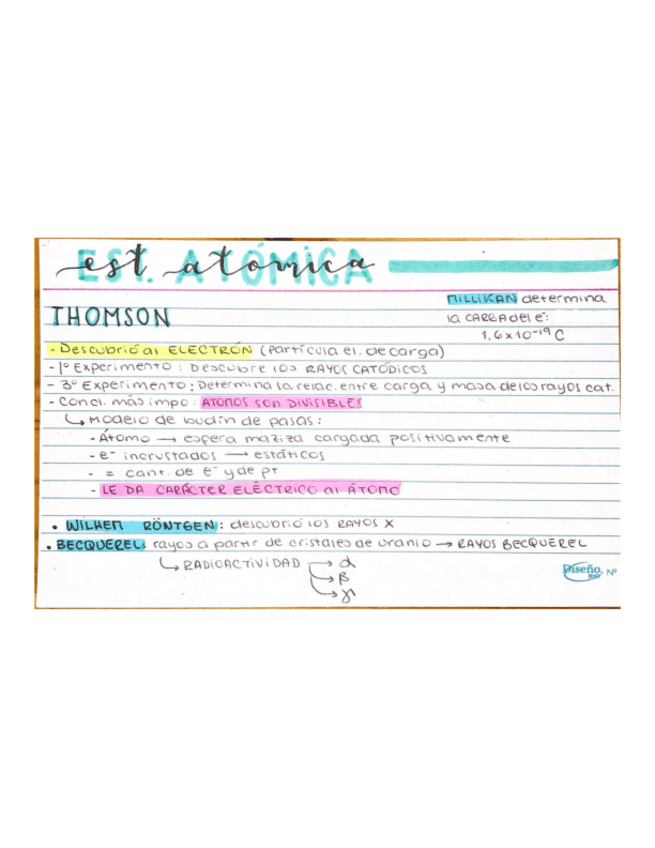 EST. ATÓMICA
est. atómica
MILLIKAN determina
la CARGA del e⁻:
1,6x10⁻¹⁹ C
THOMSON
- Descubrió al ELECTRÓN (Partícula el. de carga)
- 1º Experimento: Descubre los RAYOS CATÓDICOS
- 3º Experimento: Determina la relac. entre carga y masa de los rayos cat.
- Concl. más impo: ATOMOS son DIVISIBLES
↳ Modelo de budín de pasas:
- Átomo → esfera maziza cargada positivamente
- e⁻ incrustados → estáticos
- = cant. de e⁻ y de p+
- LE DA CARÁCTER ELÉCTRICO al ÁTOMO
• WILHEM RÖNTGEN: descubrió los RAYOS X
• BECQUEREL: rayos a partir de cristales de uranio → RAYOS BECQUEREL
↳ RADIOACTIVIDAD → α
→ β
→ γ
Diseño Nº